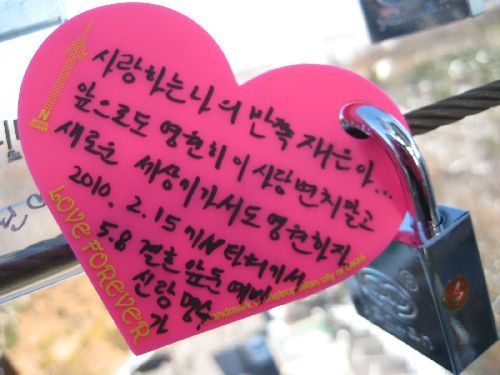 사랑하는 나의 반쪽 재은아...
앞으로도 영원히 이 사랑 변치말고
새로운 세상에 가서도 영원하자
2010. 2. 15 기N 타워에서
5.8 결혼 앞둔 예비
신랑 명수
가
N
LOVE FOREVER
landmark of metropolitan city of Seoul